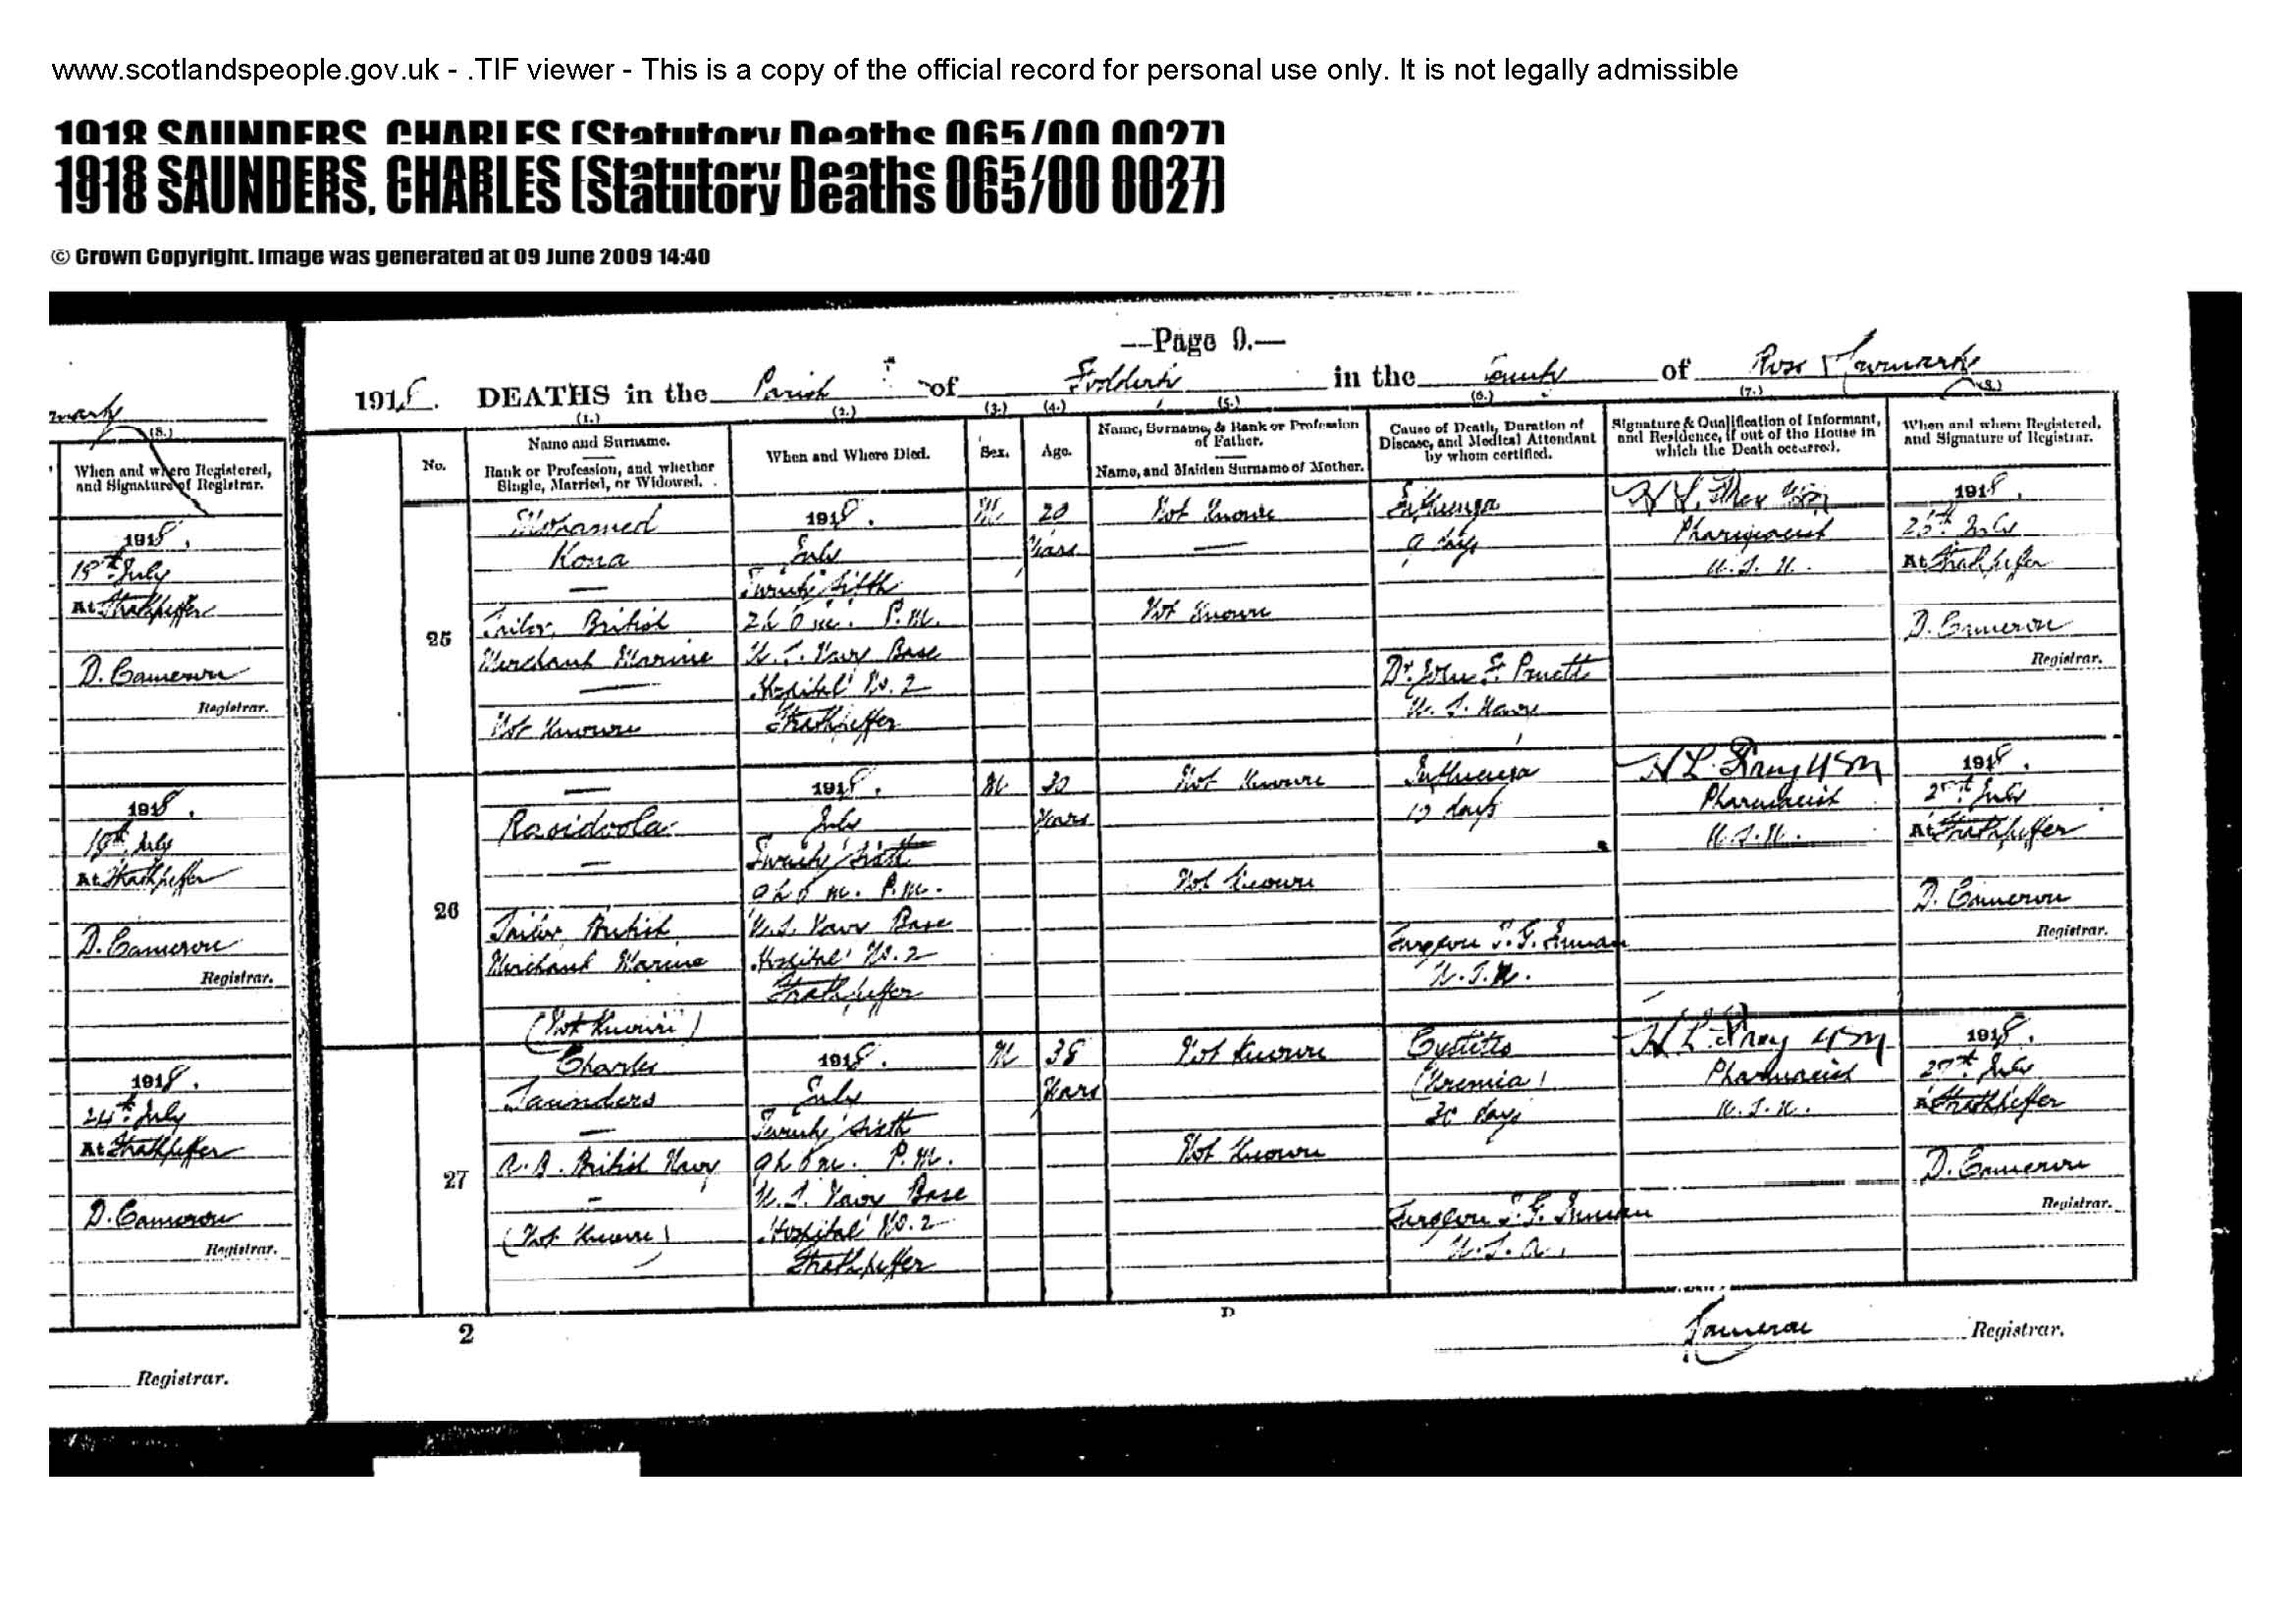 www.scotlandspeople.gov.uk - .TIF viewer - This is a copy of the official record for personal use only. It is not legally admissible
1918 SAUNDERS, CHARLES (Statutory Deaths 065/00 0027)
1918 SAUNDERS, CHARLES (Statutory Deaths 065/00 0027)
© Crown Copyright. Image was generated at 09 June 2009 14:40
(8.)
When and where Registered,
and Signature of Registrar.
1918.
At Strathpeffer
D. Cameron
Registrar.
1918.
At Strathpeffer
D. Cameron
Registrar.
1918.
24th July
At Strathpeffer
D. Cameron
Registrar.
Registrar.
—Page 9.—
1918. DEATHS in the Parish of Fodderty in the County of Ross & Cromarty
(1.) (2.) (3.) (4.) (5.) (6.) (7.) (8.)
No.
Name and Surname.
Rank or Profession, and whether
Single, Married, or Widowed.
When and Where Died.
Sex.
Age.
Name, Surname, & Rank or Profession
of Father.
Name, and Maiden Surname of Mother.
Cause of Death, Duration of
Disease, and Medical Attendant
by whom certified.
Signature & Qualification of Informant,
and Residence, if out of the House in
which the Death occurred.
When and where Registered,
and Signature of Registrar.
25
Mohamed
Kona
—
Sailor, British
Merchant Marine
—
Not Known
1918.
July
Twenty fifth
2h 0m. P.M.
U.S. Navy Base
Hospital No. 2
Strathpeffer
M
20
Years
Not Known
—
Not Known
Influenza
9 days
Dr. John F. Pruett
U.S. Navy
H L
Pharmacist
U.S.N.
1918.
July
At Strathpeffer
D. Cameron
Registrar.
26
—
Rasidoola
—
Sailor British
Merchant Marine
(Not Known)
1918.
July
Twenty sixth
9h 5m. P.M.
U.S. Navy Base
Hospital No. 2
Strathpeffer
M.
30
Years
Not Known
Not Known
Influenza
days
Surgeon T.G. Inman
U.S.N.
H L
Pharmacist
U.S.N.
1918.
July
At Strathpeffer
D. Cameron
Registrar.
27
Charles
Saunders
—
A.B. British Navy
—
(Not Known)
1918.
July
Twenty sixth
9h 5m. P.M.
U.S. Navy Base
Hospital No. 2
Strathpeffer
M
38
Years
Not Known
Not Known
Cystitis
(Uremia)
days
Surgeon T.G. Inman
H L
Pharmacist
U.S.N.
1918.
27th July
At Strathpeffer
D. Cameron
Registrar.
2
D
Cameron Registrar.